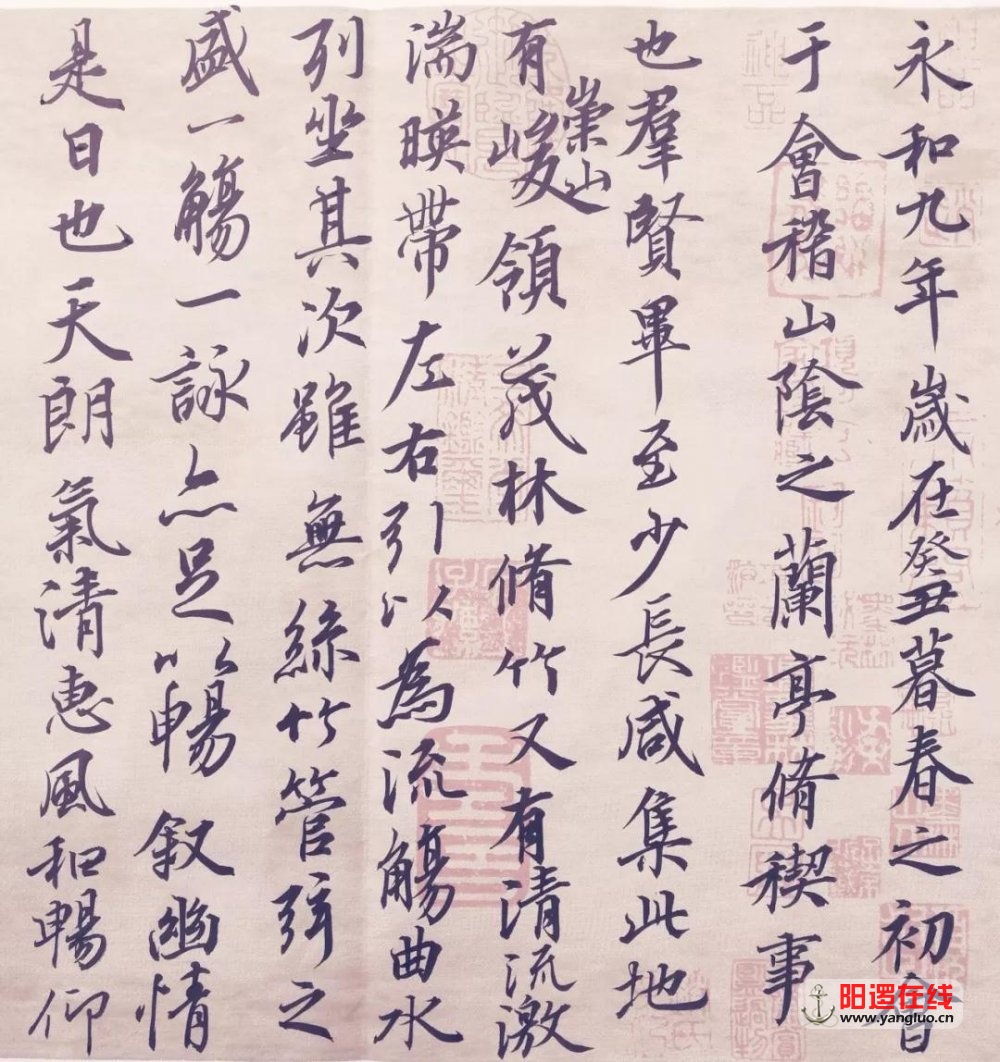 永和九年歲在癸丑暮春之初會
于會稽山陰之蘭亭脩稧事
也羣賢畢至少長咸集此地
有崇山峻領茂林脩竹又有清流激
湍暎帶左右引以為流觴曲水
列坐其次雖無絲竹管弦之
盛一觴一詠亦足以暢敘幽情
是日也天朗氣清惠風和暢仰
阳逻在线
www.yangluo.cn